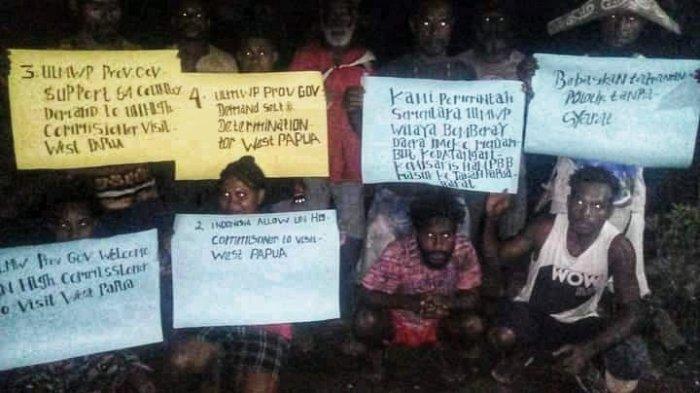 3. ULMWP PROV. GOV
SUPPORT 84 COUNTRY
DEMAND TO UN HIGH
COMMISSIONER VISIT
WEST PAPUA
4. ULMWP PROV GOV
DEMAND SELF
DETERMINATION
FOR WEST PAPUA
KAMI PEMERINTAH
SEMENTARA ULMWP
WILAYA BOMBERAY
BUK KEDATANGAN
KOMISARIS HAM PBB
MASUK KE TANAH PAPUA
BARAT
BEBASKAN TAHANAN
POLITIK TANPA
SYARAT
PROV GOV WELCOME
UN HIGH COMMISSIONER
TO VISIT WEST PAPUA
2. INDONESIA ALLOW UN HIG
COMMISSIONER TO VISIT
WEST PAPUA
WOW